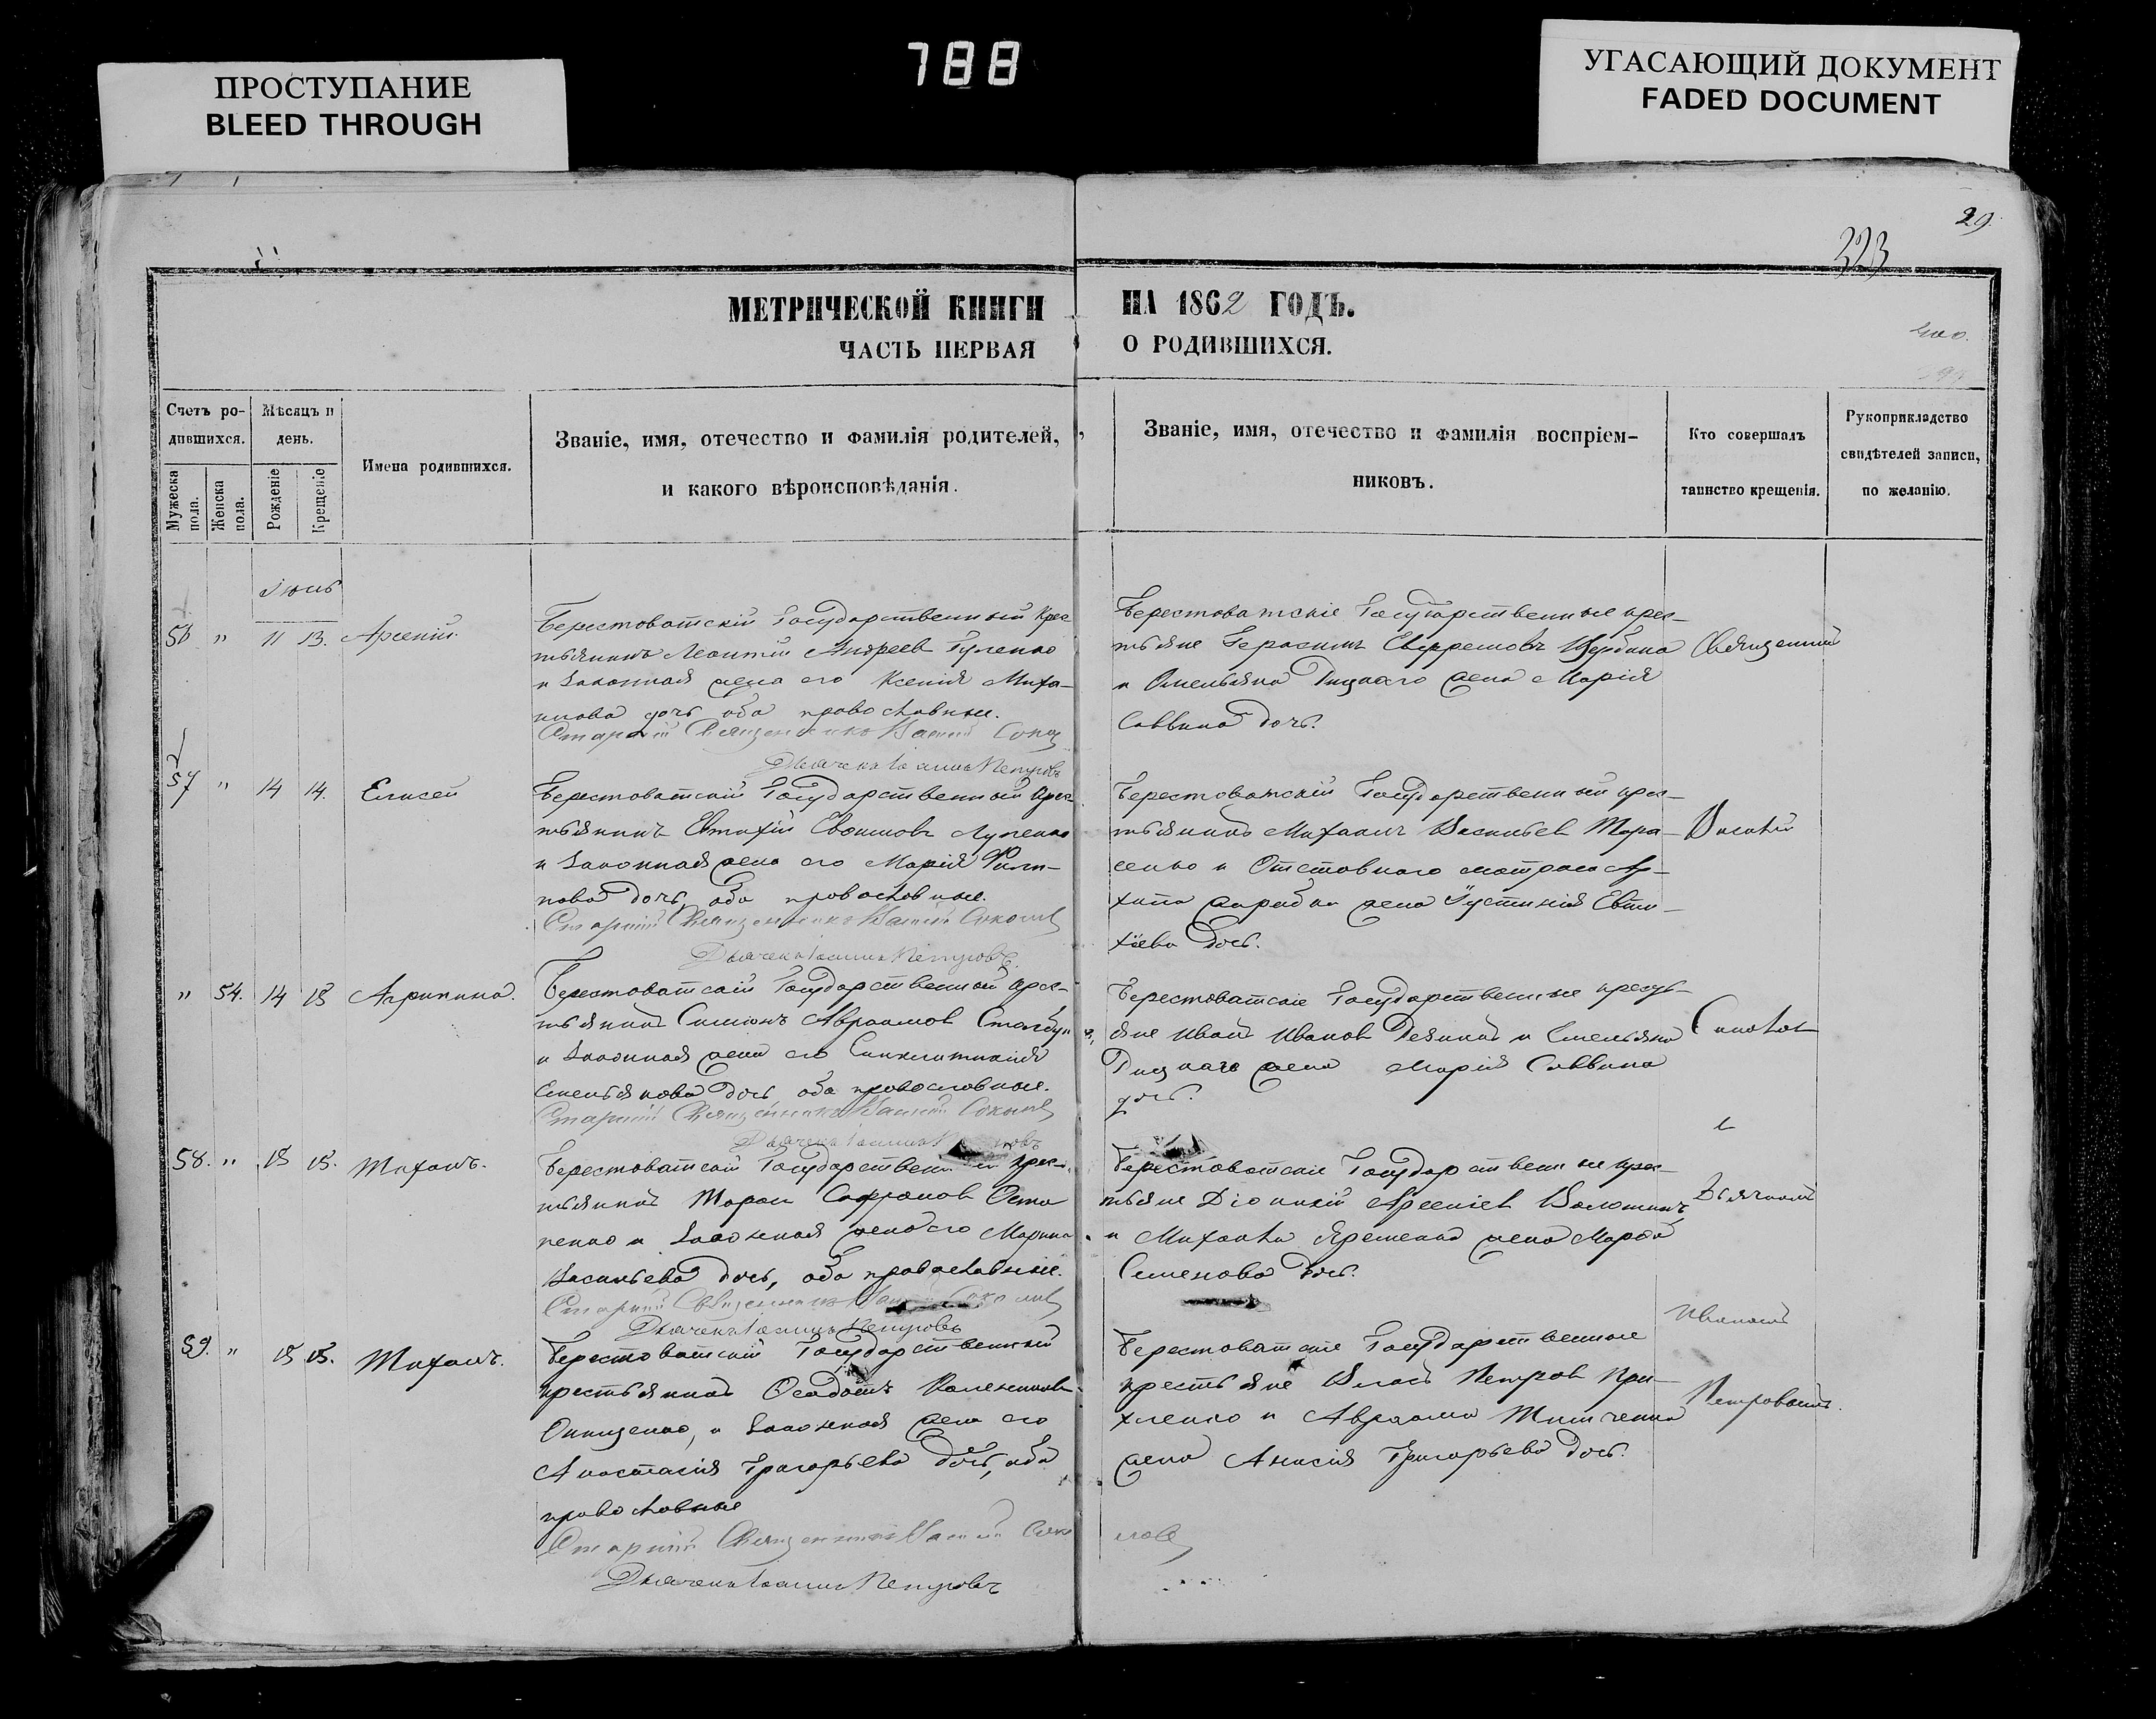 788
ПРОСТУПАНИЕ
BLEED THROUGH
УГАСАЮЩИЙ ДОКУМЕНТ
FADED DOCUMENT
29.
323
МЕТРИЧЕСКОЙ КНИГИ НА 1862 ГОДЪ.
ЧАСТЬ ПЕРВАЯ О РОДИВШИХСЯ.
Счетъ ро-
дившихся.
Мужеска пола.
Женска пола.
Мѣсяцъ и
день.
Рожденіе
Крещеніе
Имена родившихся.
Званіе, имя, отечество и фамилія родителей,
и какого вѣроисповѣданія.
Званіе, имя, отечество и фамилія воспріем-
никовъ.
Кто совершалъ
таинство крещенія.
Рукоприкладство
свидѣтелей записи,
по желанію.
56 " 11 13. Арсеній.
Берестоватскій Государственный крес
тьянинъ Леонтій Андреев Гуленко
и законная жена его Ксенія Миха-
илова дочь оба православные.
Старшій Священникъ
Дьячекъ Іоаннъ Петровъ
Берестоватскіе Государственные крес-
тьяне Герасимъ Щербина
и Омельяна жена Марія
Саввина дочь.
57 " 14 14. Елисей
Берестоватскій Государственный крес-
тьянинъ Евтихій
и законная жена его Марія Филип-
пова дочь оба православные.
Старшій Священникъ
Дьячекъ Іоаннъ Петровъ.
Берестоватскій Государственный крес-
тьянинъ Михаилъ Васильев Тара-
сенко и Отставного матроса Ар-
хипа жена Устинія Евти-
хіева дочь.
" 54. 14 15 Агрипина.
Берестоватскій Государственный крес-
тьянинъ Симіонъ Авраамов
и законная жена его Синклитикія
Емельянова дочь оба православные.
Старшій Священникъ
Дьячекъ Іоаннъ
Берестоватскіе Государственные кресть-
яне Иван Иванов и Емельяна
жена Марія Саввина
дочь.
58. " 15 15. Тихонъ.
Берестоватскій крес-
тьянинъ Тарас Софронов Оста
пенко и законная жена его Марина
Васильева дочь, оба православные.
Старшій Священникъ
Дьячекъ Іоаннъ Петровъ
Берестоватскіе Государственные крес-
тьяне Діонисій Арсеніев Волошинъ
и Михаила Яременка жена Марфа
Семенова дочь.
59. " 15 15. Тихонъ.
Берестоватскій Государственный
крестьянинъ
Онищенко, и законная жена его
Анастасія Григорьева дочь, оба
православные
Старшій Священникъ
Дьячекъ Іоаннъ Петровъ
Берестоватскіе Государственные
крестьяне Власъ Петров При-
хленко и Авраама Тимченка
жена Анисія Григорьева дочь.
Священникъ
Василій
Соколов
с
Дьячкомъ
Иваномъ
Петровымъ.